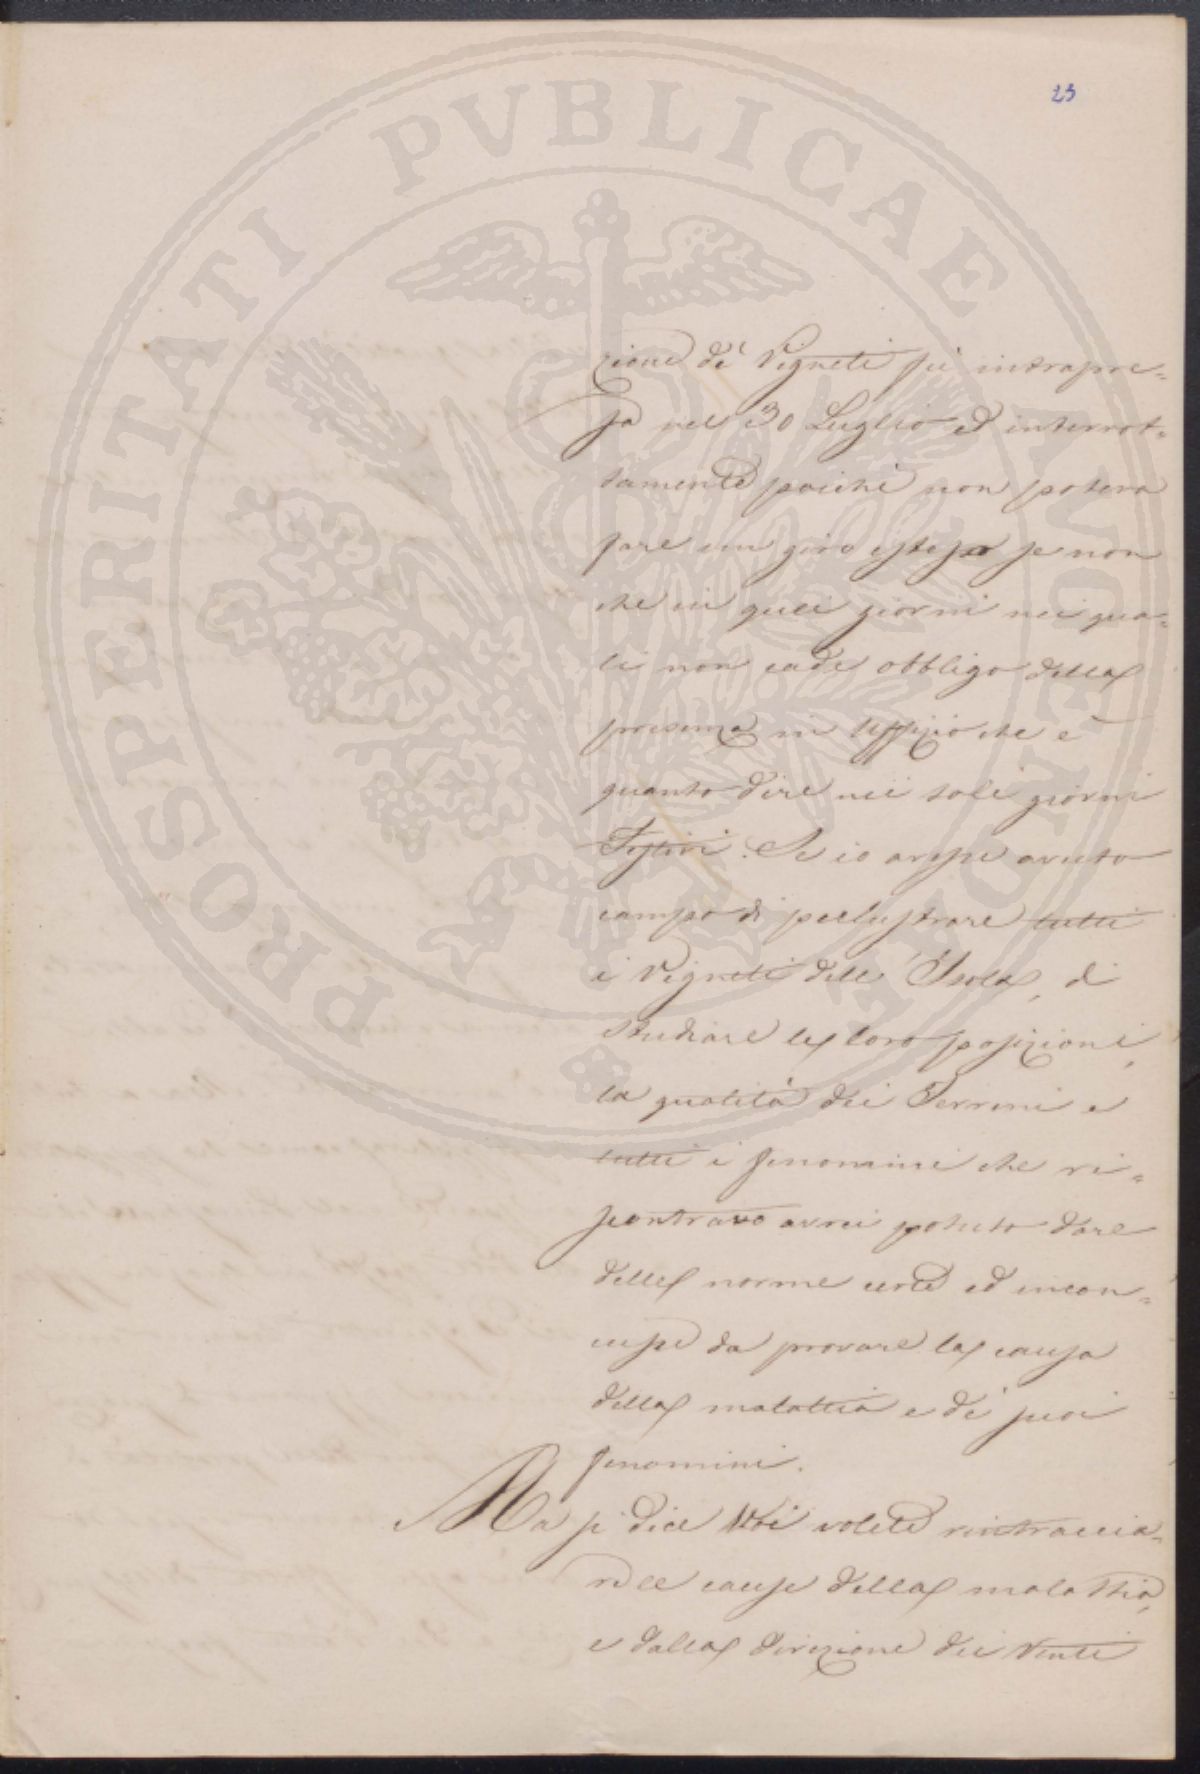 PROSPERITATI PVBLICAE AVGENDAE
23
zione de' Vigneti fù intrapre-
sa nel 30 Luglio ed interrot-
tamente poichè non poteva
fare un giro esteso se non
che in quei giorni nei qua-
li non cade obbligo della
presenza in Uffizio che è
quanto dire nei soli giorni
Festivi. Se io avessi avuto
campo di perlustrare tutti
i Vigneti dell'Isola, di
studiare le loro posizioni,
la qualità dei Terreni e
tutti i fenomini che ri-
scontravo avrei potuto dare
delle norme certe ed incon-
cusse da provare la causa
della malattia e de' suoi
fenomini.
Ma si dice Voi volete rintraccia-
re le cause della malattia,
e dalla direzione dei Venti